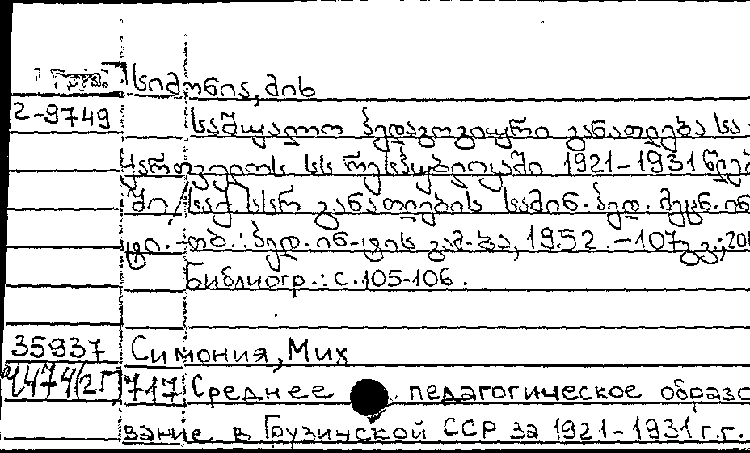 Груз. სიმონია, მიხ
2-9749 საშუალო პედაგოგიური განათლება სა-
ქართველოს სსრ რესპუბლიკაში 1921-1931 წლებ
ში / საქ. სსრ განათლების სამინ. პედ. მეცნ. ინ
ტი. - თბ.: პედ. ინ-ტის გამ-ბა, 1952. - 107 გვ.; 20
Библиогр.: с. 105-106.
35937 Симония, Мих
717 Среднее педагогическое образо
вание в Грузинской ССР за 1921-1931 г.г.